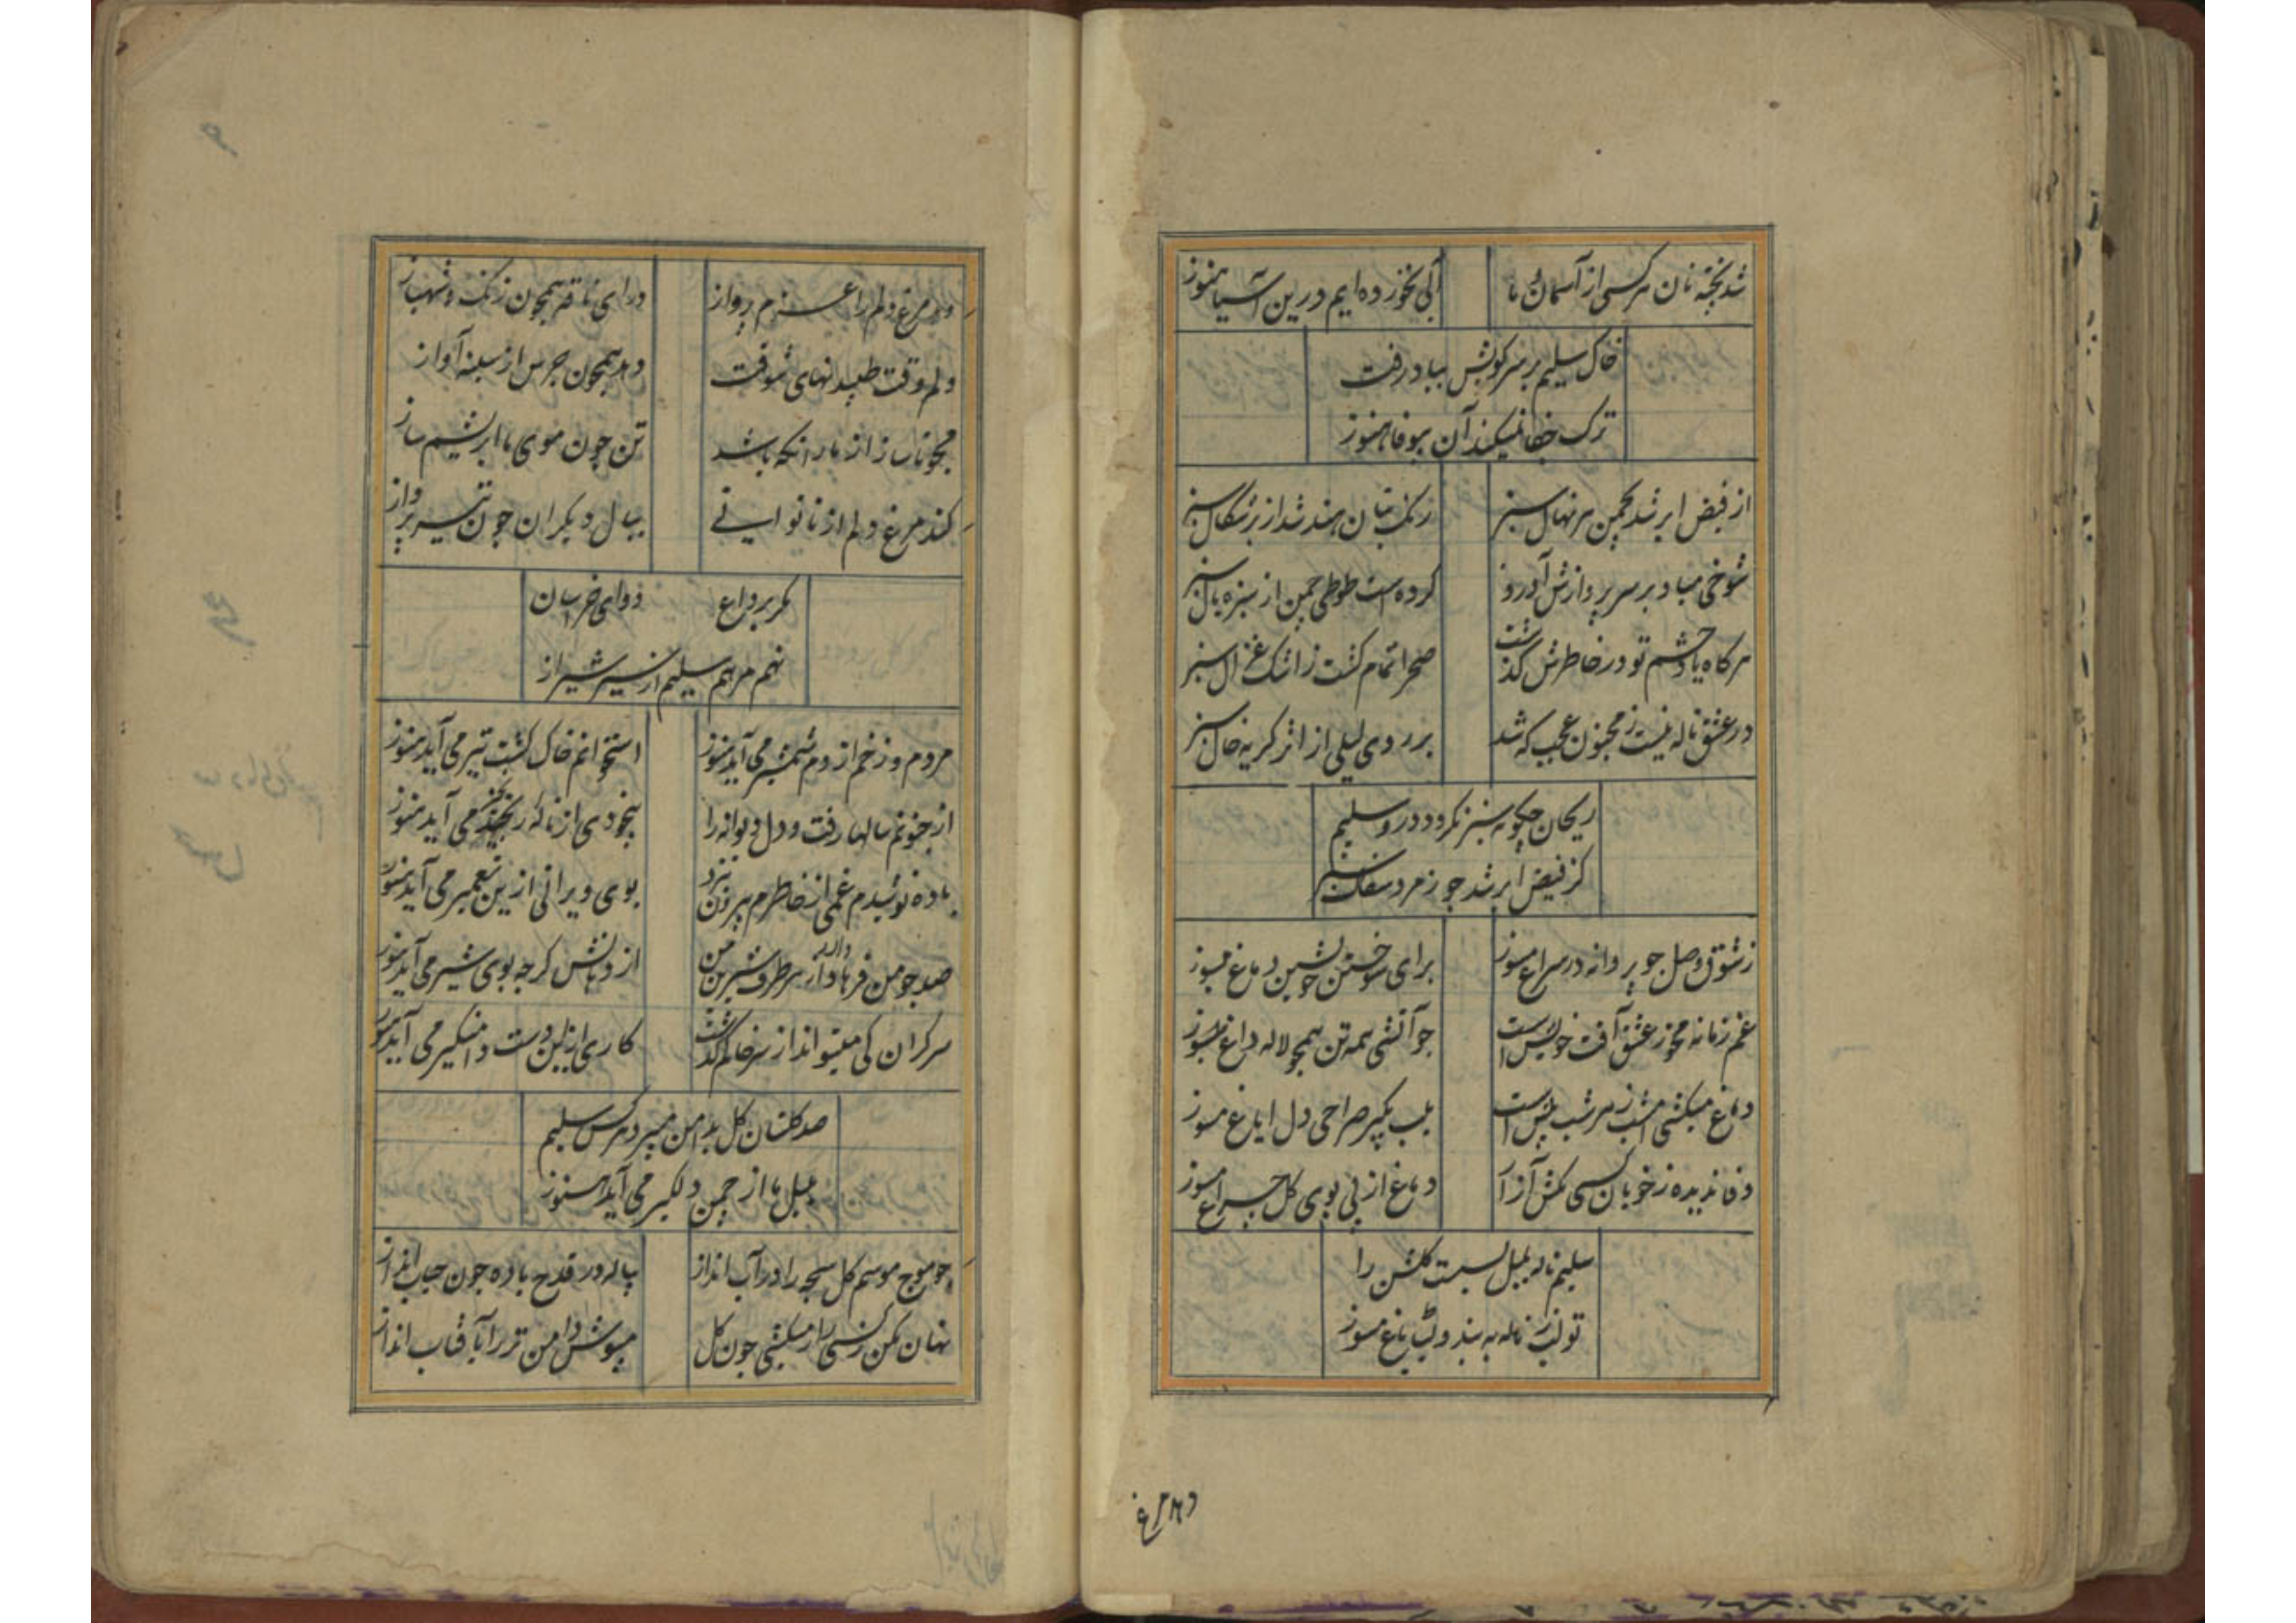 شد پخته نان هر کسی از آسمان ما آبی نخورده ایم درین آسیا هنوز
خاک سلیم بر سر کویش بباد رفت
ترک جفا نمیکند آن بیوفا هنوز
از فیض ابر شد بچمن هر نهال سبز رنک بتان هند شد از برشکال سبز
شوخی مباد بر سر پروازش آورد کرده است طوطی چمن از سبزه بال سبز
هر کاه یاد چشم تو در خاطرش کذشت صحرا تمام کشت ز اشک غزال سبز
در عشق ناله نیست ز مجنون عجب که شد بر روی لیلی از اثر کریه خال سبز
ریحان چکونه سبز نکردد درو سلیم
کز فیض ابر شد چو زمرد سفال سبز
ز شوق وصل چو پروانه در سراغ مسوز برای سوختن خویشتن دماغ مسوز
غم زمانه مخور عشق آفت خویش است چو آتشی همه تن همچو لاله داغ مسوز
دماغ میکشی امشب ز هر شب بیش است بلب بکیر صراحی دل ایاغ مسوز
وفا ندیده ز خوبان کسی مکش آزار دماغ از پی بوی کل چراغ مسوز
سلیم ناله بلبل بست کلشن را
تو لب ز ناله به بند و باغ مسوز
دهد مرغ
دهد مرغ دلم را عزم پرواز درای ناقه همچون زنک شهباز
دلم وقت طپیدنهای شوقت دهد همچون جرس از سینه آواز
مجو ناساز از ما زانکه باشد تن چون موی ما ابریشم ساز
کند مرغ دلم از ناتوانی ببال دیکران چون تیر پرواز
مکر بر داغ دوای خراسان
نهم مرهم سلیم از شیر شیراز
مردم و زخم از دم شمشیر می آید هنوز استخوانم خاک کشت تیر می آید هنوز
از جنونم سالها رفت و دل دیوانه را بیخودی از ناله زنجیر می آید هنوز
باده نوشیدم غمی از خاطرم بیرون نرفت بوی ویرانی ازین تعمیر می آید هنوز
صد چو من فرهاد دارد هر طرف شیرین من از دهانش کرچه بوی شیر می آید هنوز
سرکران کی میتواند از سر خاکم کذشت کاری از این دست دامنکیر می آید هنوز
صد کلستان کل بدامن میبرد هر کس سلیم
بلبل ما از چمن دلکیر می آید هنوز
چو موج موسم کل سبحه را در آب انداز پیاله در قدح باده چون حباب انداز
نهان مکن ز کسی راز میکشی چون کل مپوش دامن تر را بآفتاب انداز